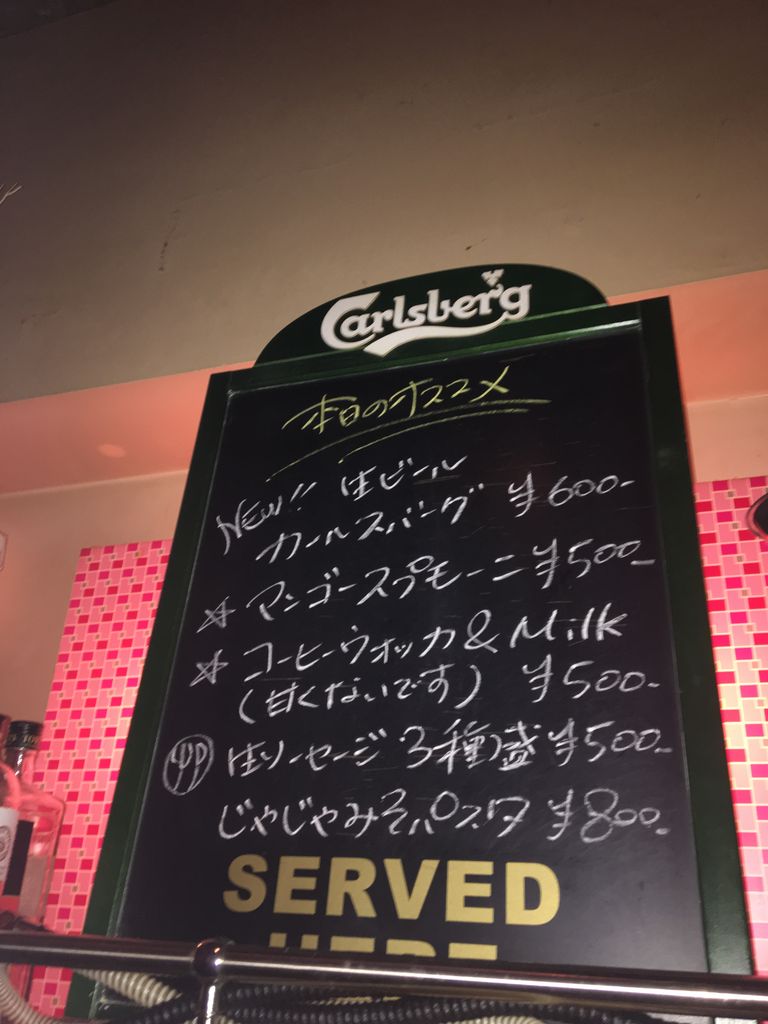 Carlsberg
本日のオススメ
NEW!! 生ビール
カールスバーグ ¥600-
☆ マンゴースプモーニ ¥500-
☆ コーヒーウォッカ & Milk
(甘くないです) ¥500-
生ソーセージ 3種盛 ¥500-
じゃじゃみそパスタ ¥800-
SERVED
HERE